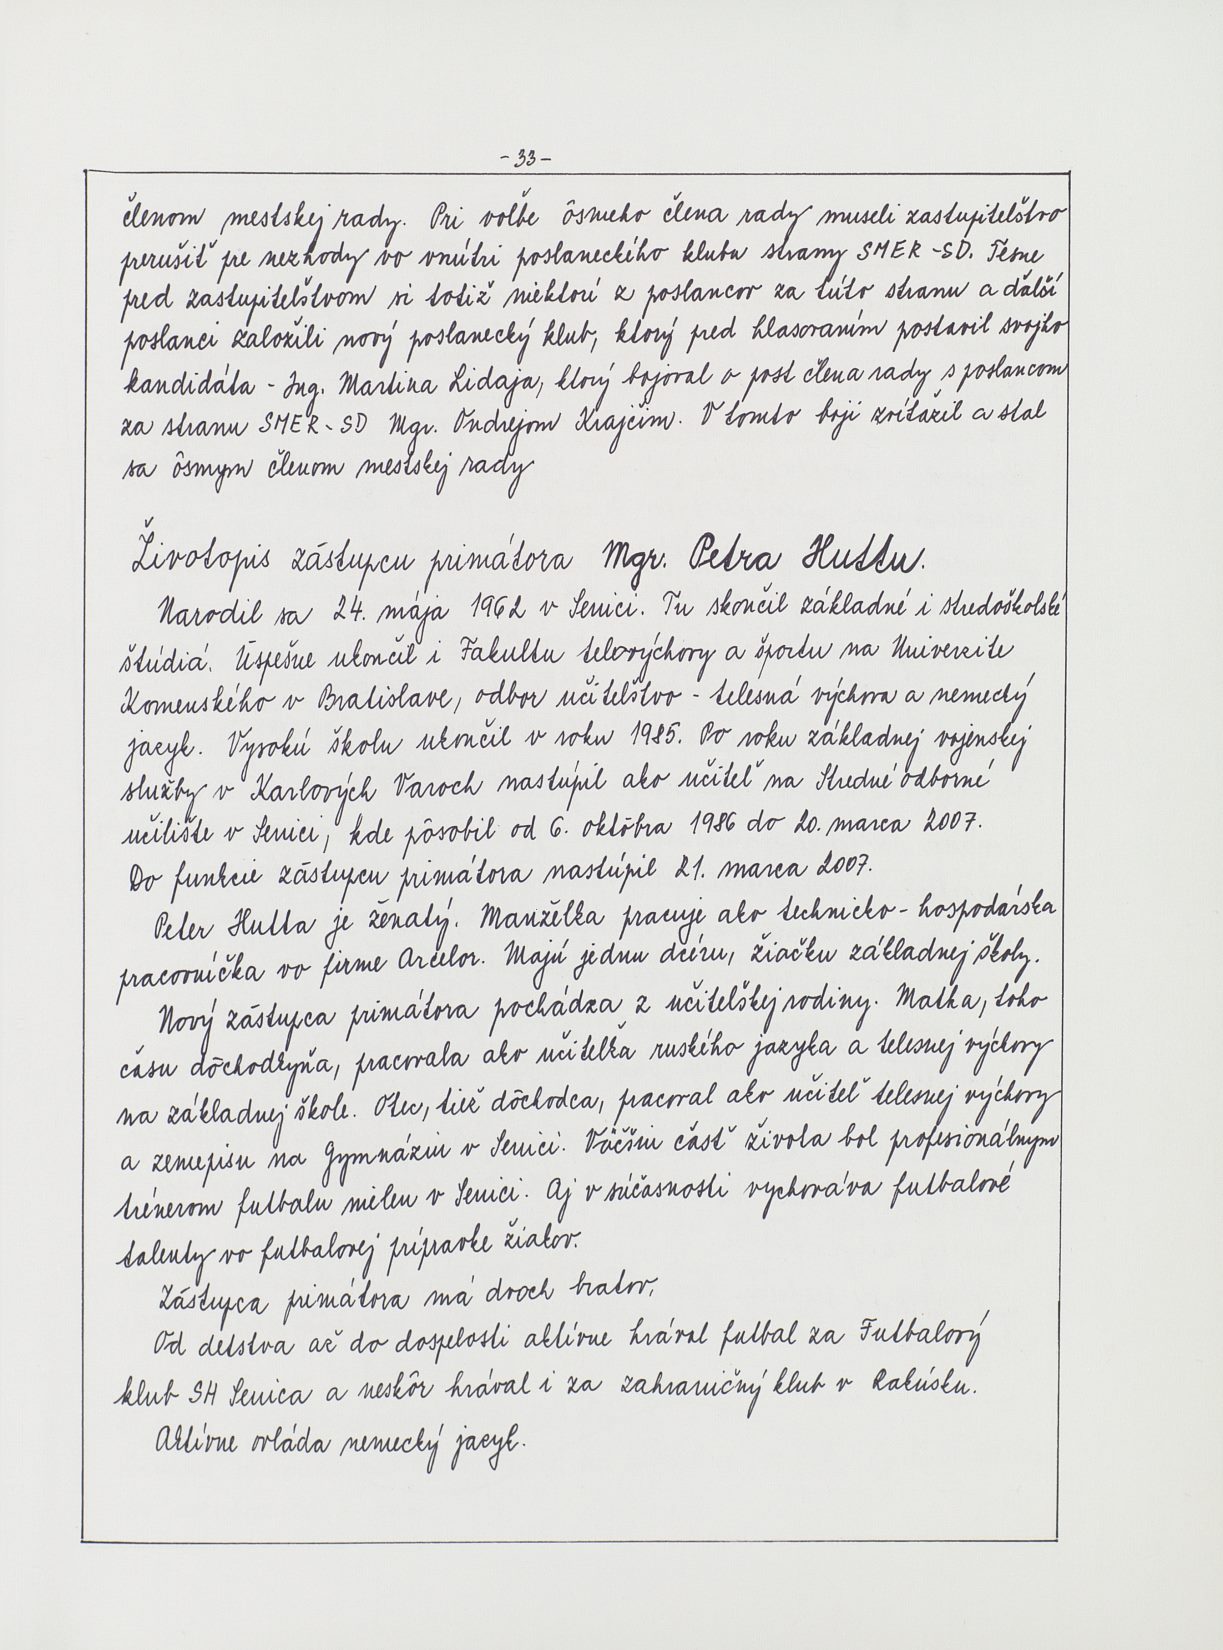 - 33 -
členom mestskej rady. Pri voľbe ôsmeho člena rady museli zastupiteľstvo
prerušiť pre nezhody vo vnútri poslaneckého klubu strany SMER-SD. Tesne
pred zastupiteľstvom si totiž niektorí z poslancov za túto stranu a ďalší
poslanci založili nový poslanecký klub, ktorý pred hlasovaním postavil svojho
kandidáta - Ing. Martina Lidaja, ktorý bojoval o post člena rady s poslancom
za stranu SMER-SD Mgr. Ondrejom Krajčim. V tomto boji zvíťazil a stal
sa ôsmym členom mestskej rady
Životopis zástupcu primátora Mgr. Petra Huttu.
Narodil sa 24. mája 1962 v Senici. Tu skončil základné i stredoškolské
štúdiá. Úspešne ukončil i Fakultu telovýchovy a športu na Univerzite
Komenského v Bratislave, odbor učiteľstvo - telesná výchova a nemecký
jazyk. Vysokú školu ukončil v roku 1985. Po roku základnej vojenskej
služby v Karlových Varoch nastúpil ako učiteľ na Stredné odborné
učilište v Senici, kde pôsobil od 6. októbra 1986 do 20. marca 2007.
Do funkcie zástupcu primátora nastúpil 21. marca 2007.
Peter Hutta je ženatý. Manželka pracuje ako technicko - hospodárska
pracovníčka vo firme Arcelor. Majú jednu dcéru, žiačku základnej školy.
Nový zástupca primátora pochádza z učiteľskej rodiny. Matka, toho
času dôchodkyňa, pracovala ako učiteľka ruského jazyka a telesnej výchovy
na základnej škole. Otec, tiež dôchodca, pracoval ako učiteľ telesnej výchovy
a zemepisu na Gymnáziu v Senici. Väčšiu časť života bol profesionálnym
trénerom futbalu mileu v Senici. Aj v súčasnosti vychováva futbalové
talenty vo futbalovej prípravke žiakov.
Zástupca primátora má dvoch bratov.
Od detstva až do dospelosti aktívne hrával futbal za Futbalový
klub SH Senica a neskôr hrával i za zahraničný klub v Rakúsku.
Aktívne ovláda nemecký jazyk.